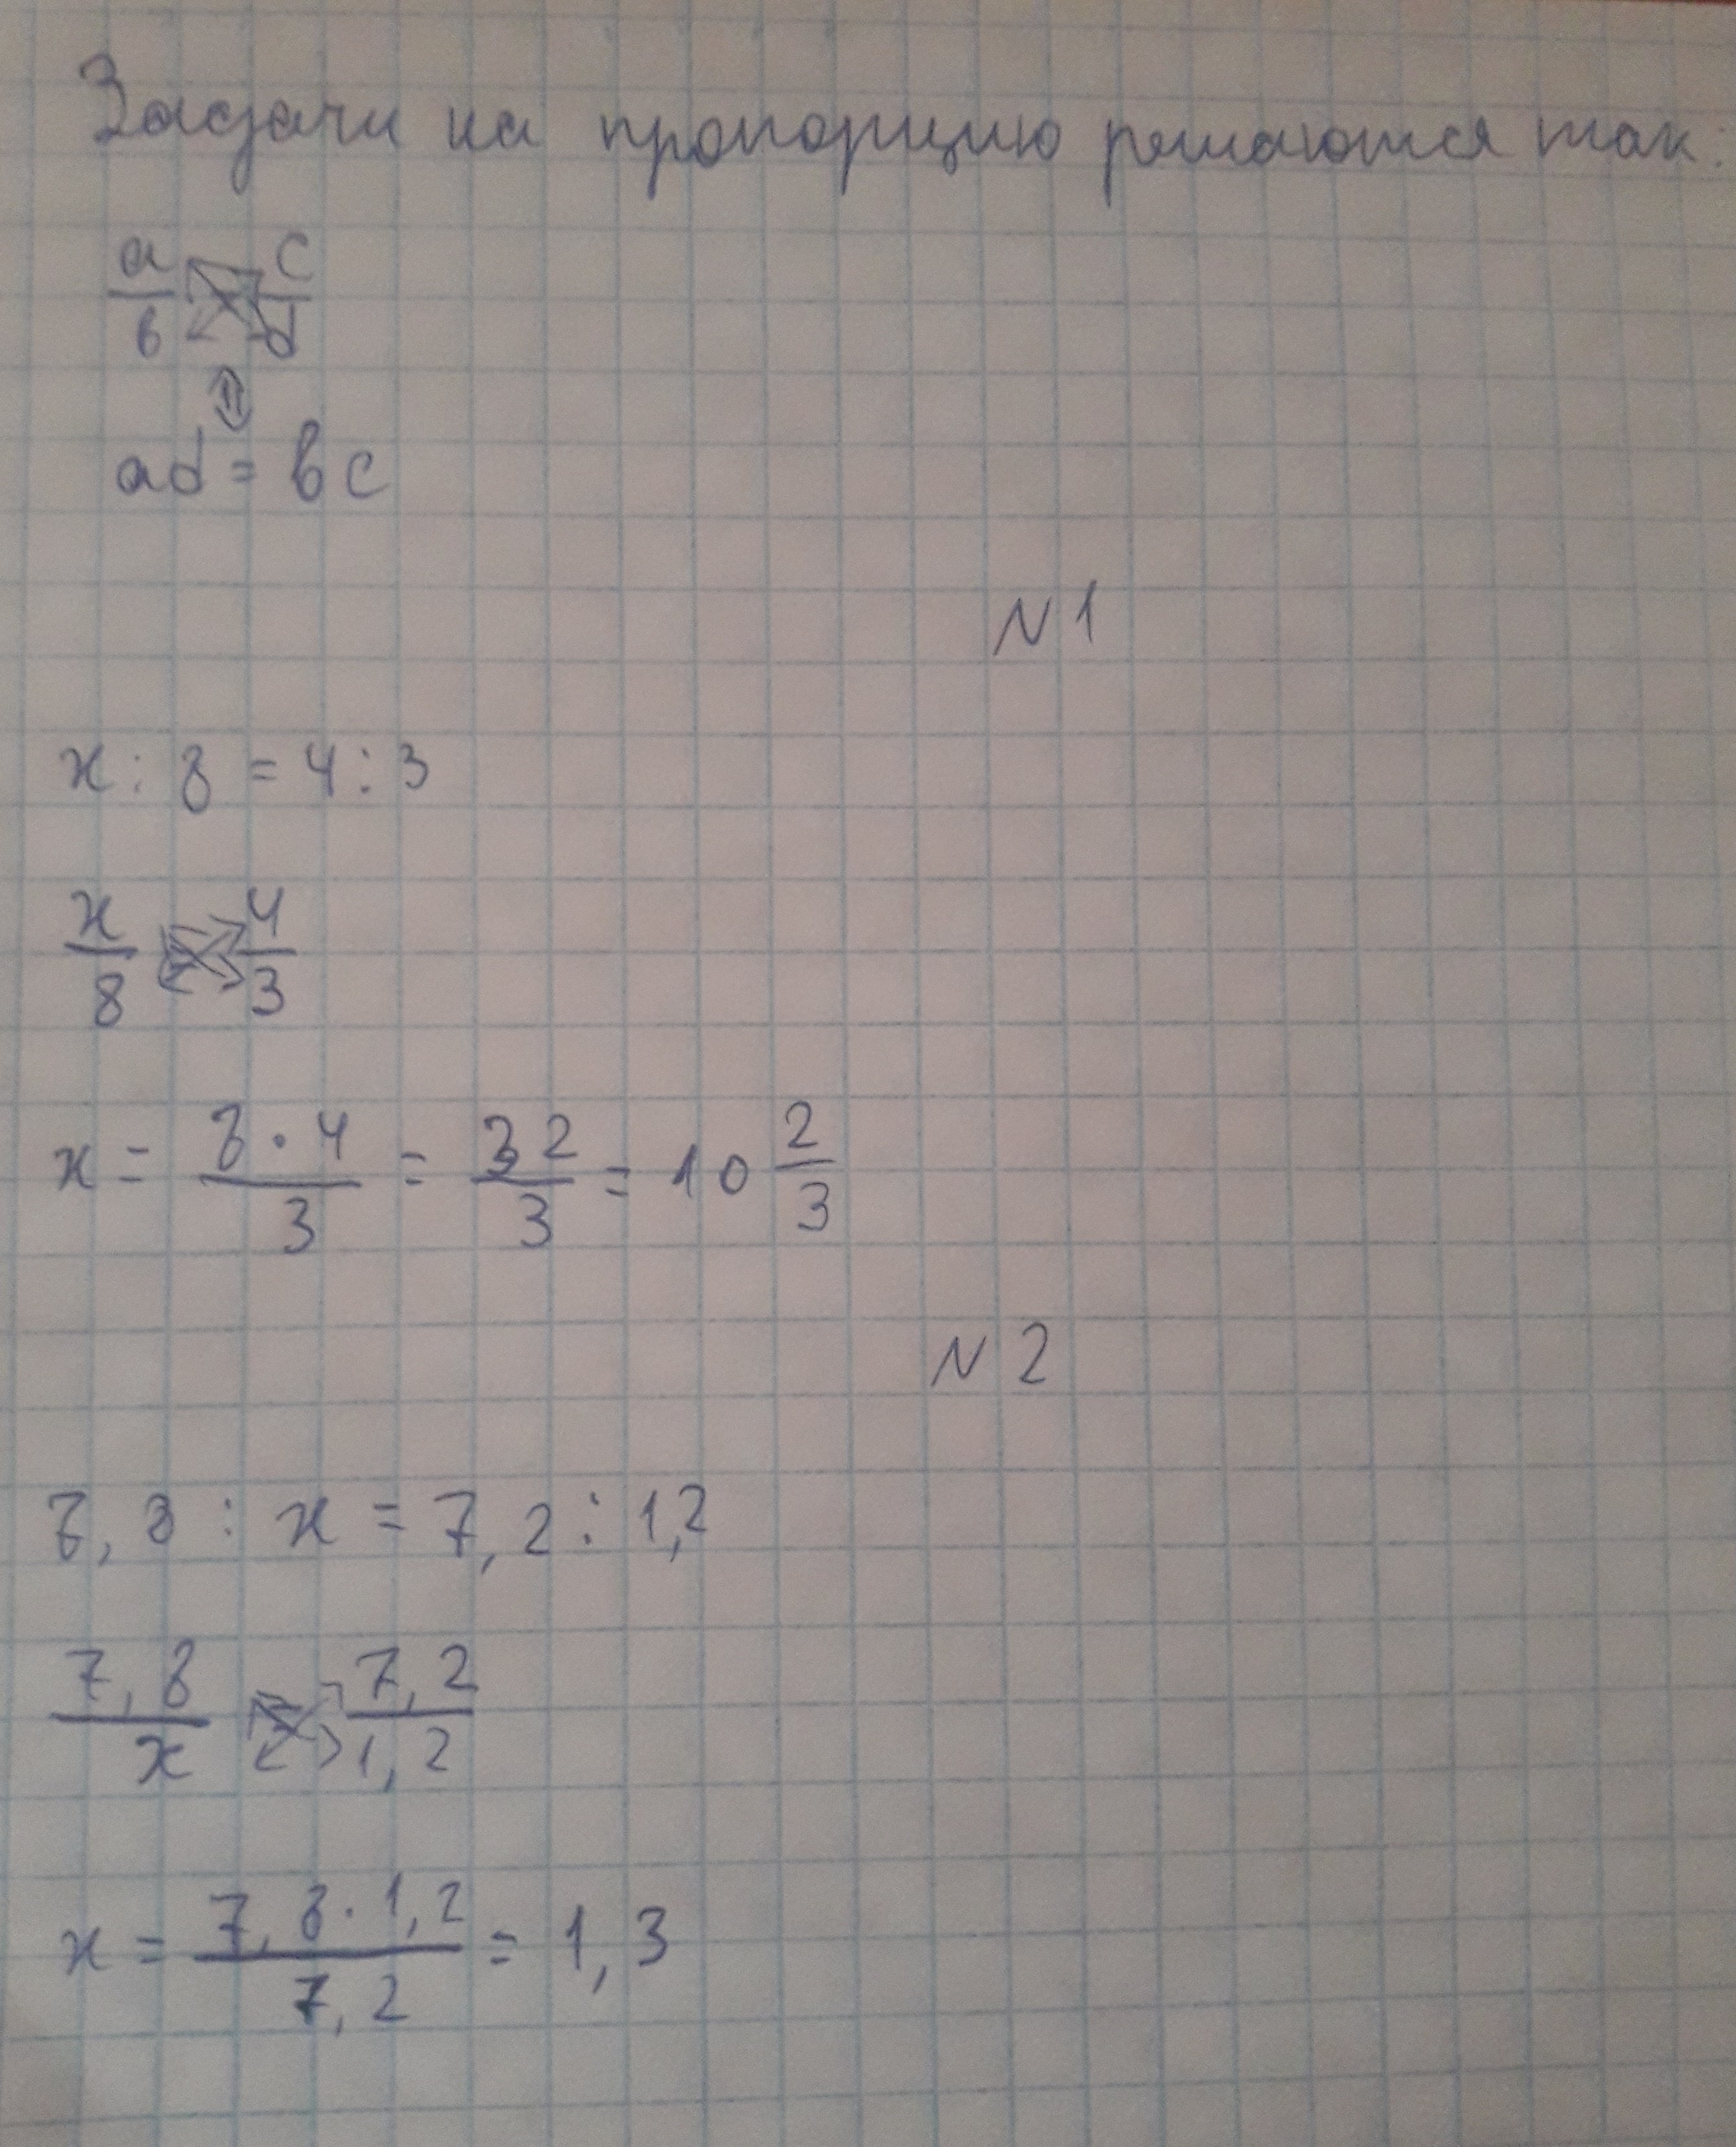 Задачи на пропорцию решаются так:
a/b c/d
⇕
ad = bc
N 1
x : 8 = 4 : 3
x/8 = 4/3
x = 8·4/3 = 32/3 = 10 2/3
N 2
7,8 : x = 7,2 : 1,2
7,8/x = 7,2/1,2
x = 7,8·1,2/7,2 = 1,3